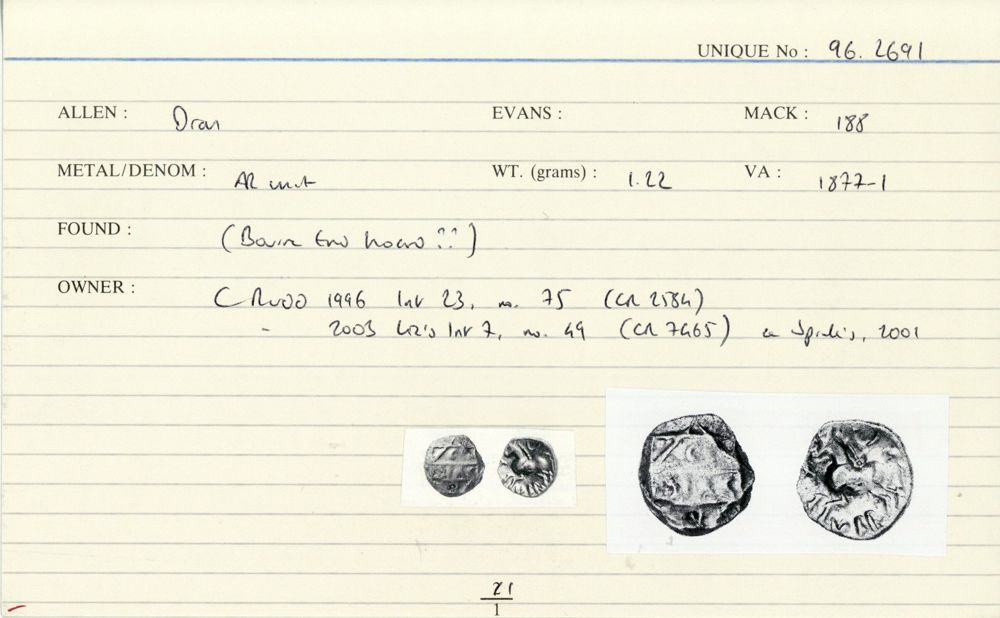 UNIQUE No : 96. 2691
ALLEN : EVANS : MACK : 188
METAL/DENOM : AR unit WT. (grams) : 1.22 VA : 1877-1
FOUND : (
OWNER : C RUDD 1996 list 23, no. 75 (CR 2584)
" 2003 Liz's list 7, no. 49 (CR 7465) ex Spink's, 2001
21
1